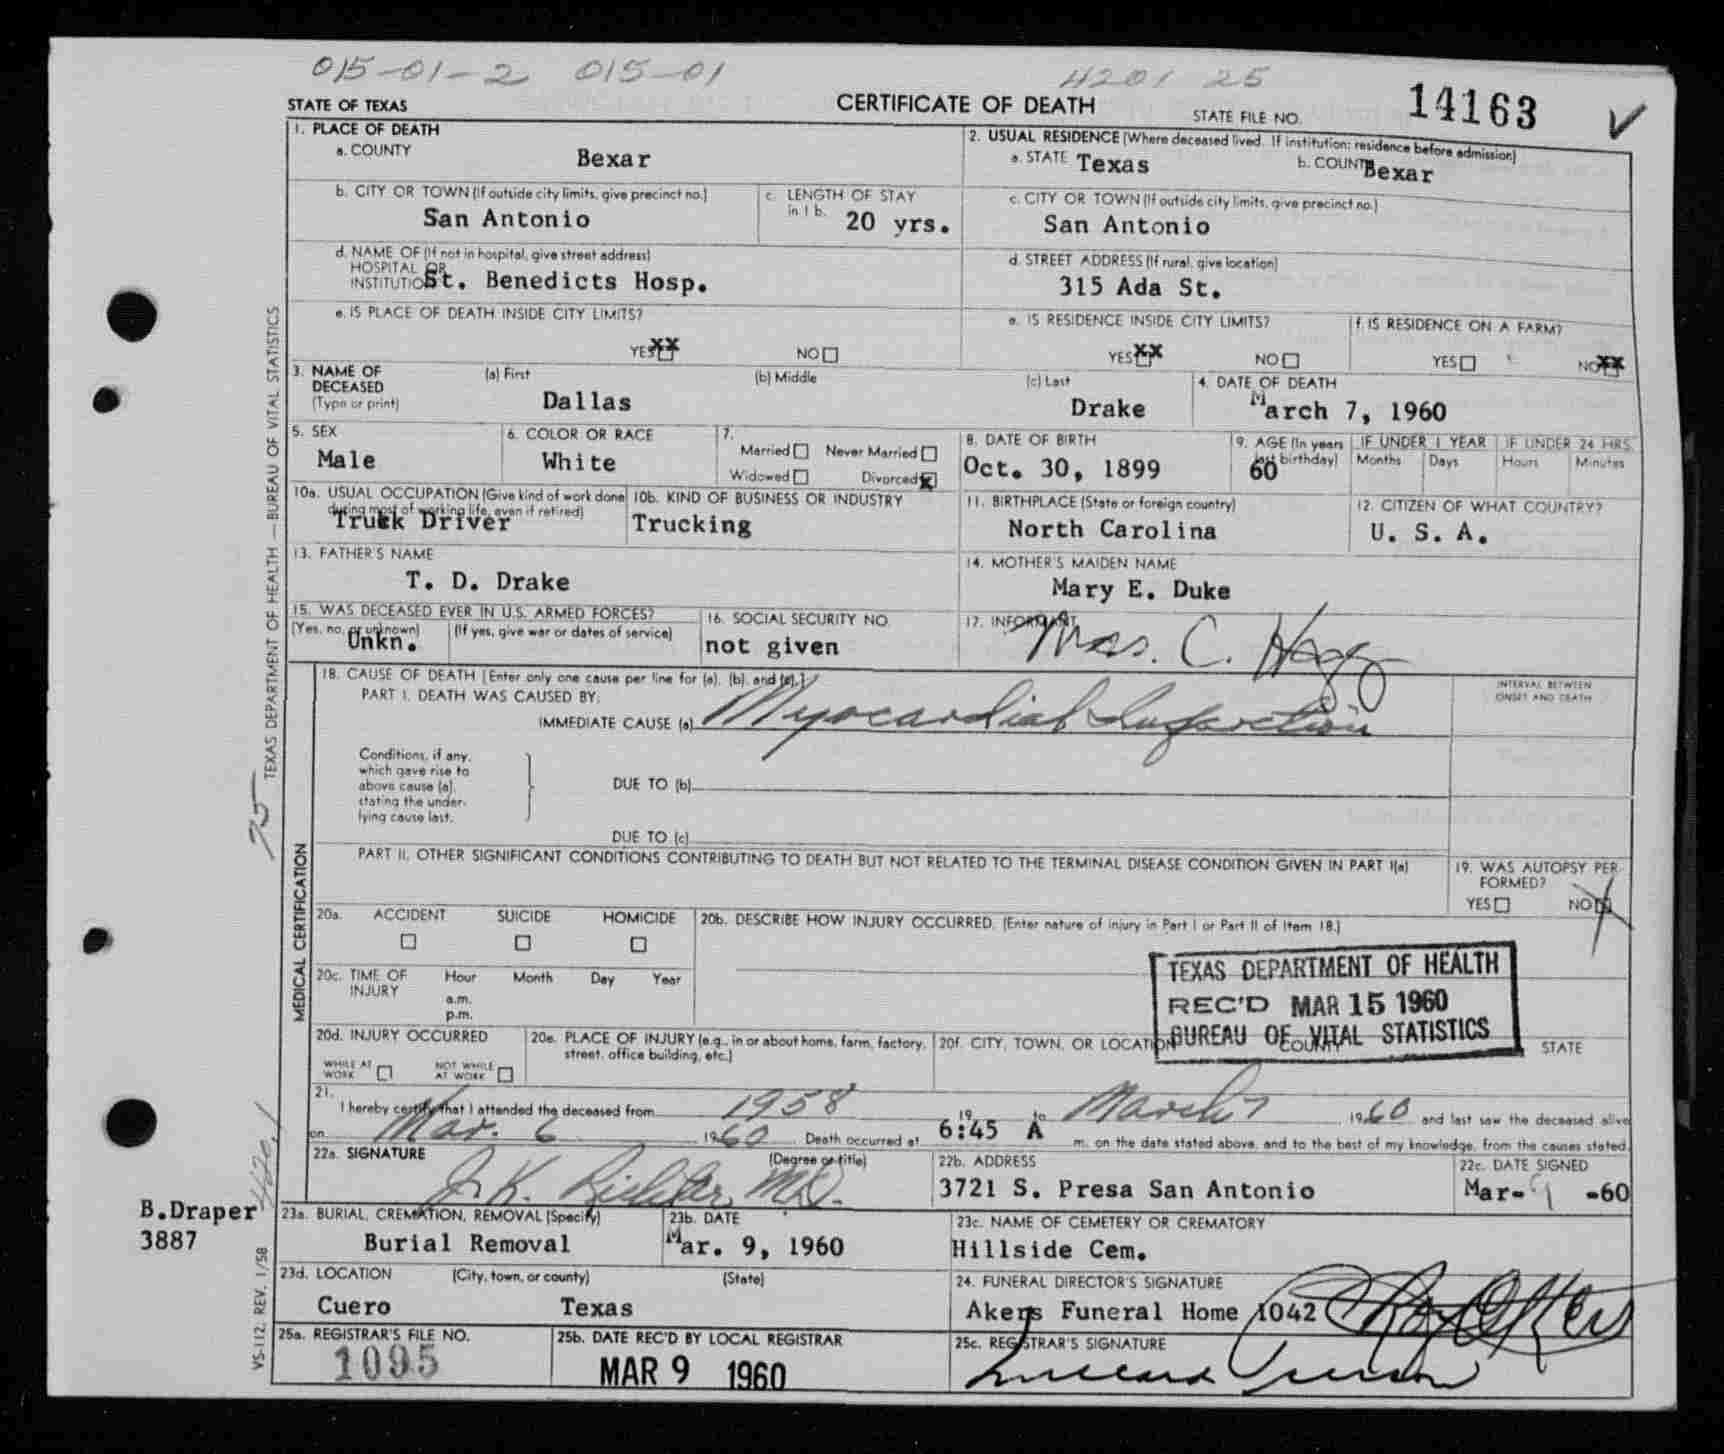 015-01-2 015-01 4201 25
STATE OF TEXAS CERTIFICATE OF DEATH STATE FILE NO. 14163
1. PLACE OF DEATH
a. COUNTY
Bexar
2. USUAL RESIDENCE (Where deceased lived. If institution: residence before admission)
a. STATE Texas b. COUNTY Bexar
b. CITY OR TOWN (If outside city limits, give precinct no.)
San Antonio
c. LENGTH OF STAY
in 1 b. 20 yrs.
c. CITY OR TOWN (If outside city limits, give precinct no.)
San Antonio
d. NAME OF (If not in hospital, give street address)
HOSPITAL OR
INSTITUTION St. Benedicts Hosp.
d. STREET ADDRESS (If rural, give location)
315 Ada St.
e. IS PLACE OF DEATH INSIDE CITY LIMITS?
YES XX NO
e. IS RESIDENCE INSIDE CITY LIMITS?
YES XX NO
f. IS RESIDENCE ON A FARM?
YES NO XX
3. NAME OF
DECEASED
(Type or print)
(a) First (b) Middle (c) Last
Dallas Drake
4. DATE OF DEATH
March 7, 1960
5. SEX
Male
6. COLOR OR RACE
White
7.
Married Never Married
Widowed Divorced X
8. DATE OF BIRTH
Oct. 30, 1899
9. AGE (In years
last birthday)
60
IF UNDER 1 YEAR
Months Days
IF UNDER 24 HRS.
Hours Minutes
10a. USUAL OCCUPATION (Give kind of work done
during most of working life, even if retired)
Truck Driver
10b. KIND OF BUSINESS OR INDUSTRY
Trucking
11. BIRTHPLACE (State or foreign country)
North Carolina
12. CITIZEN OF WHAT COUNTRY?
U. S. A.
13. FATHER'S NAME
T. D. Drake
14. MOTHER'S MAIDEN NAME
Mary E. Duke
15. WAS DECEASED EVER IN U.S. ARMED FORCES?
(Yes, no, or unknown) (If yes, give war or dates of service)
Unkn.
16. SOCIAL SECURITY NO.
not given
17. INFORMANT
Mrs. C. Hogg
18. CAUSE OF DEATH [Enter only one cause per line for (a), (b), and (c).]
PART I. DEATH WAS CAUSED BY:
IMMEDIATE CAUSE (a) Myocardial Infarction
INTERVAL BETWEEN
ONSET AND DEATH
Conditions, if any,
which gave rise to
above cause (a),
stating the under-
lying cause last.
DUE TO (b)
DUE TO (c)
PART II. OTHER SIGNIFICANT CONDITIONS CONTRIBUTING TO DEATH BUT NOT RELATED TO THE TERMINAL DISEASE CONDITION GIVEN IN PART I(a)
19. WAS AUTOPSY PER-
FORMED?
YES NO X
20a. ACCIDENT SUICIDE HOMICIDE
20b. DESCRIBE HOW INJURY OCCURRED. (Enter nature of injury in Part I or Part II of Item 18.)
20c. TIME OF
INJURY
Hour Month Day Year
a.m.
p.m.
TEXAS DEPARTMENT OF HEALTH
REC'D MAR 15 1960
BUREAU OF VITAL STATISTICS
20d. INJURY OCCURRED
WHILE AT
WORK
NOT WHILE
AT WORK
20e. PLACE OF INJURY (e.g., in or about home, farm, factory,
street, office building, etc.)
20f. CITY, TOWN, OR LOCATION COUNTY STATE
21.
I hereby certify that I attended the deceased from 1958 19 to March 7, 1960 and last saw the deceased alive
on Mar. 6 1960. Death occurred at 6:45 A m. on the date stated above, and to the best of my knowledge, from the causes stated.
22a. SIGNATURE (Degree or title)
J. K. Richter, M.D.
22b. ADDRESS
3721 S. Presa San Antonio
22c. DATE SIGNED
Mar-9-60
23a. BURIAL, CREMATION, REMOVAL (Specify)
Burial Removal
23b. DATE
Mar. 9, 1960
23c. NAME OF CEMETERY OR CREMATORY
Hillside Cem.
23d. LOCATION (City, town, or county) (State)
Cuero Texas
24. FUNERAL DIRECTOR'S SIGNATURE
Akers Funeral Home 1042
25a. REGISTRAR'S FILE NO.
1095
25b. DATE REC'D BY LOCAL REGISTRAR
MAR 9 1960
25c. REGISTRAR'S SIGNATURE
TEXAS DEPARTMENT OF HEALTH — BUREAU OF VITAL STATISTICS
75
MEDICAL CERTIFICATION
420.1
B.Draper
3887
VS-112, REV. 1/58